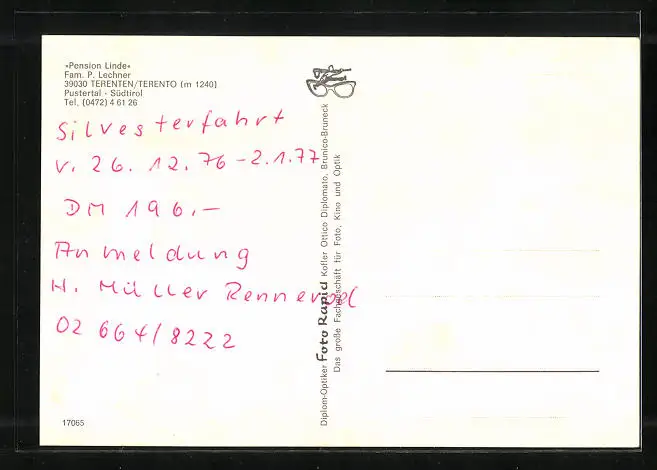 »Pension Linde«
Fam. P. Lechner
39030 TERENTEN/TERENTO (m 1240)
Pustertal - Südtirol
Tel. (0472) 4 61 26
Silvesterfahrt
v. 26. 12. 76 - 2.1.77
DM 196.-
Anmeldung
H. Müller Rennerod
02 664/8222
17065
Diplom-Optiker Foto Rapid Kofler Ottico Diplomato, Brunico-Bruneck
Das große Fachgeschäft für Foto, Kino und Optik